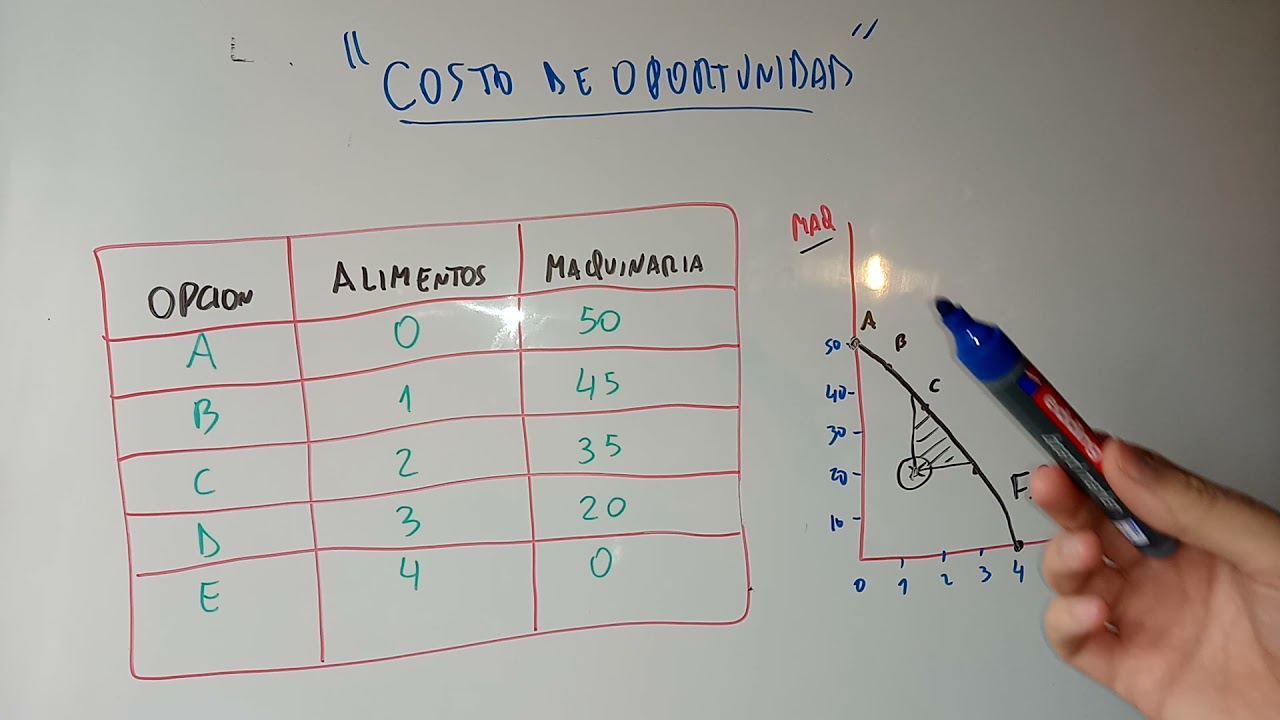 "COSTO DE OPORTUNIDAD"
OPCION ALIMENTOS MAQUINARIA
A 0 50
B 1 45
C 2 35
D 3 20
E 4 0
MAQ
A
B
C
F
50
40
30
20
10
0 1 2 3 4